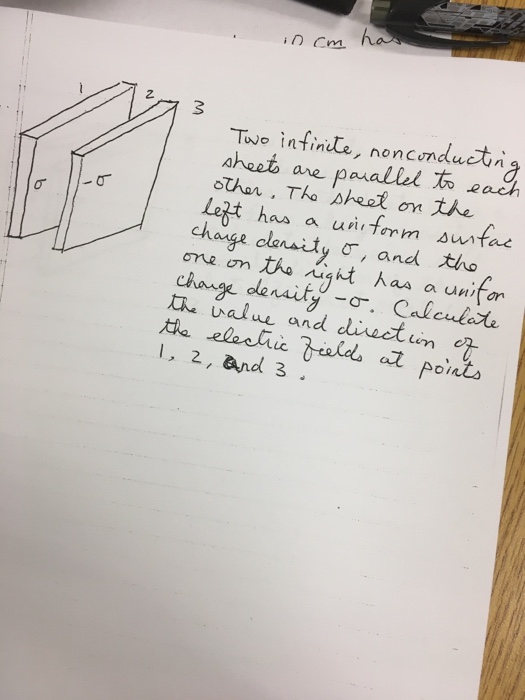 10 cm has
1
2
3
σ
-σ
Two infinite, nonconducting
sheets are parallel to each
other. The sheet on the
left has a uniform surfac
charge density σ, and the
one on the right has a unifor
charge density -σ. Calculate
the value and direction of
the electric fields at points
1, 2, and 3.